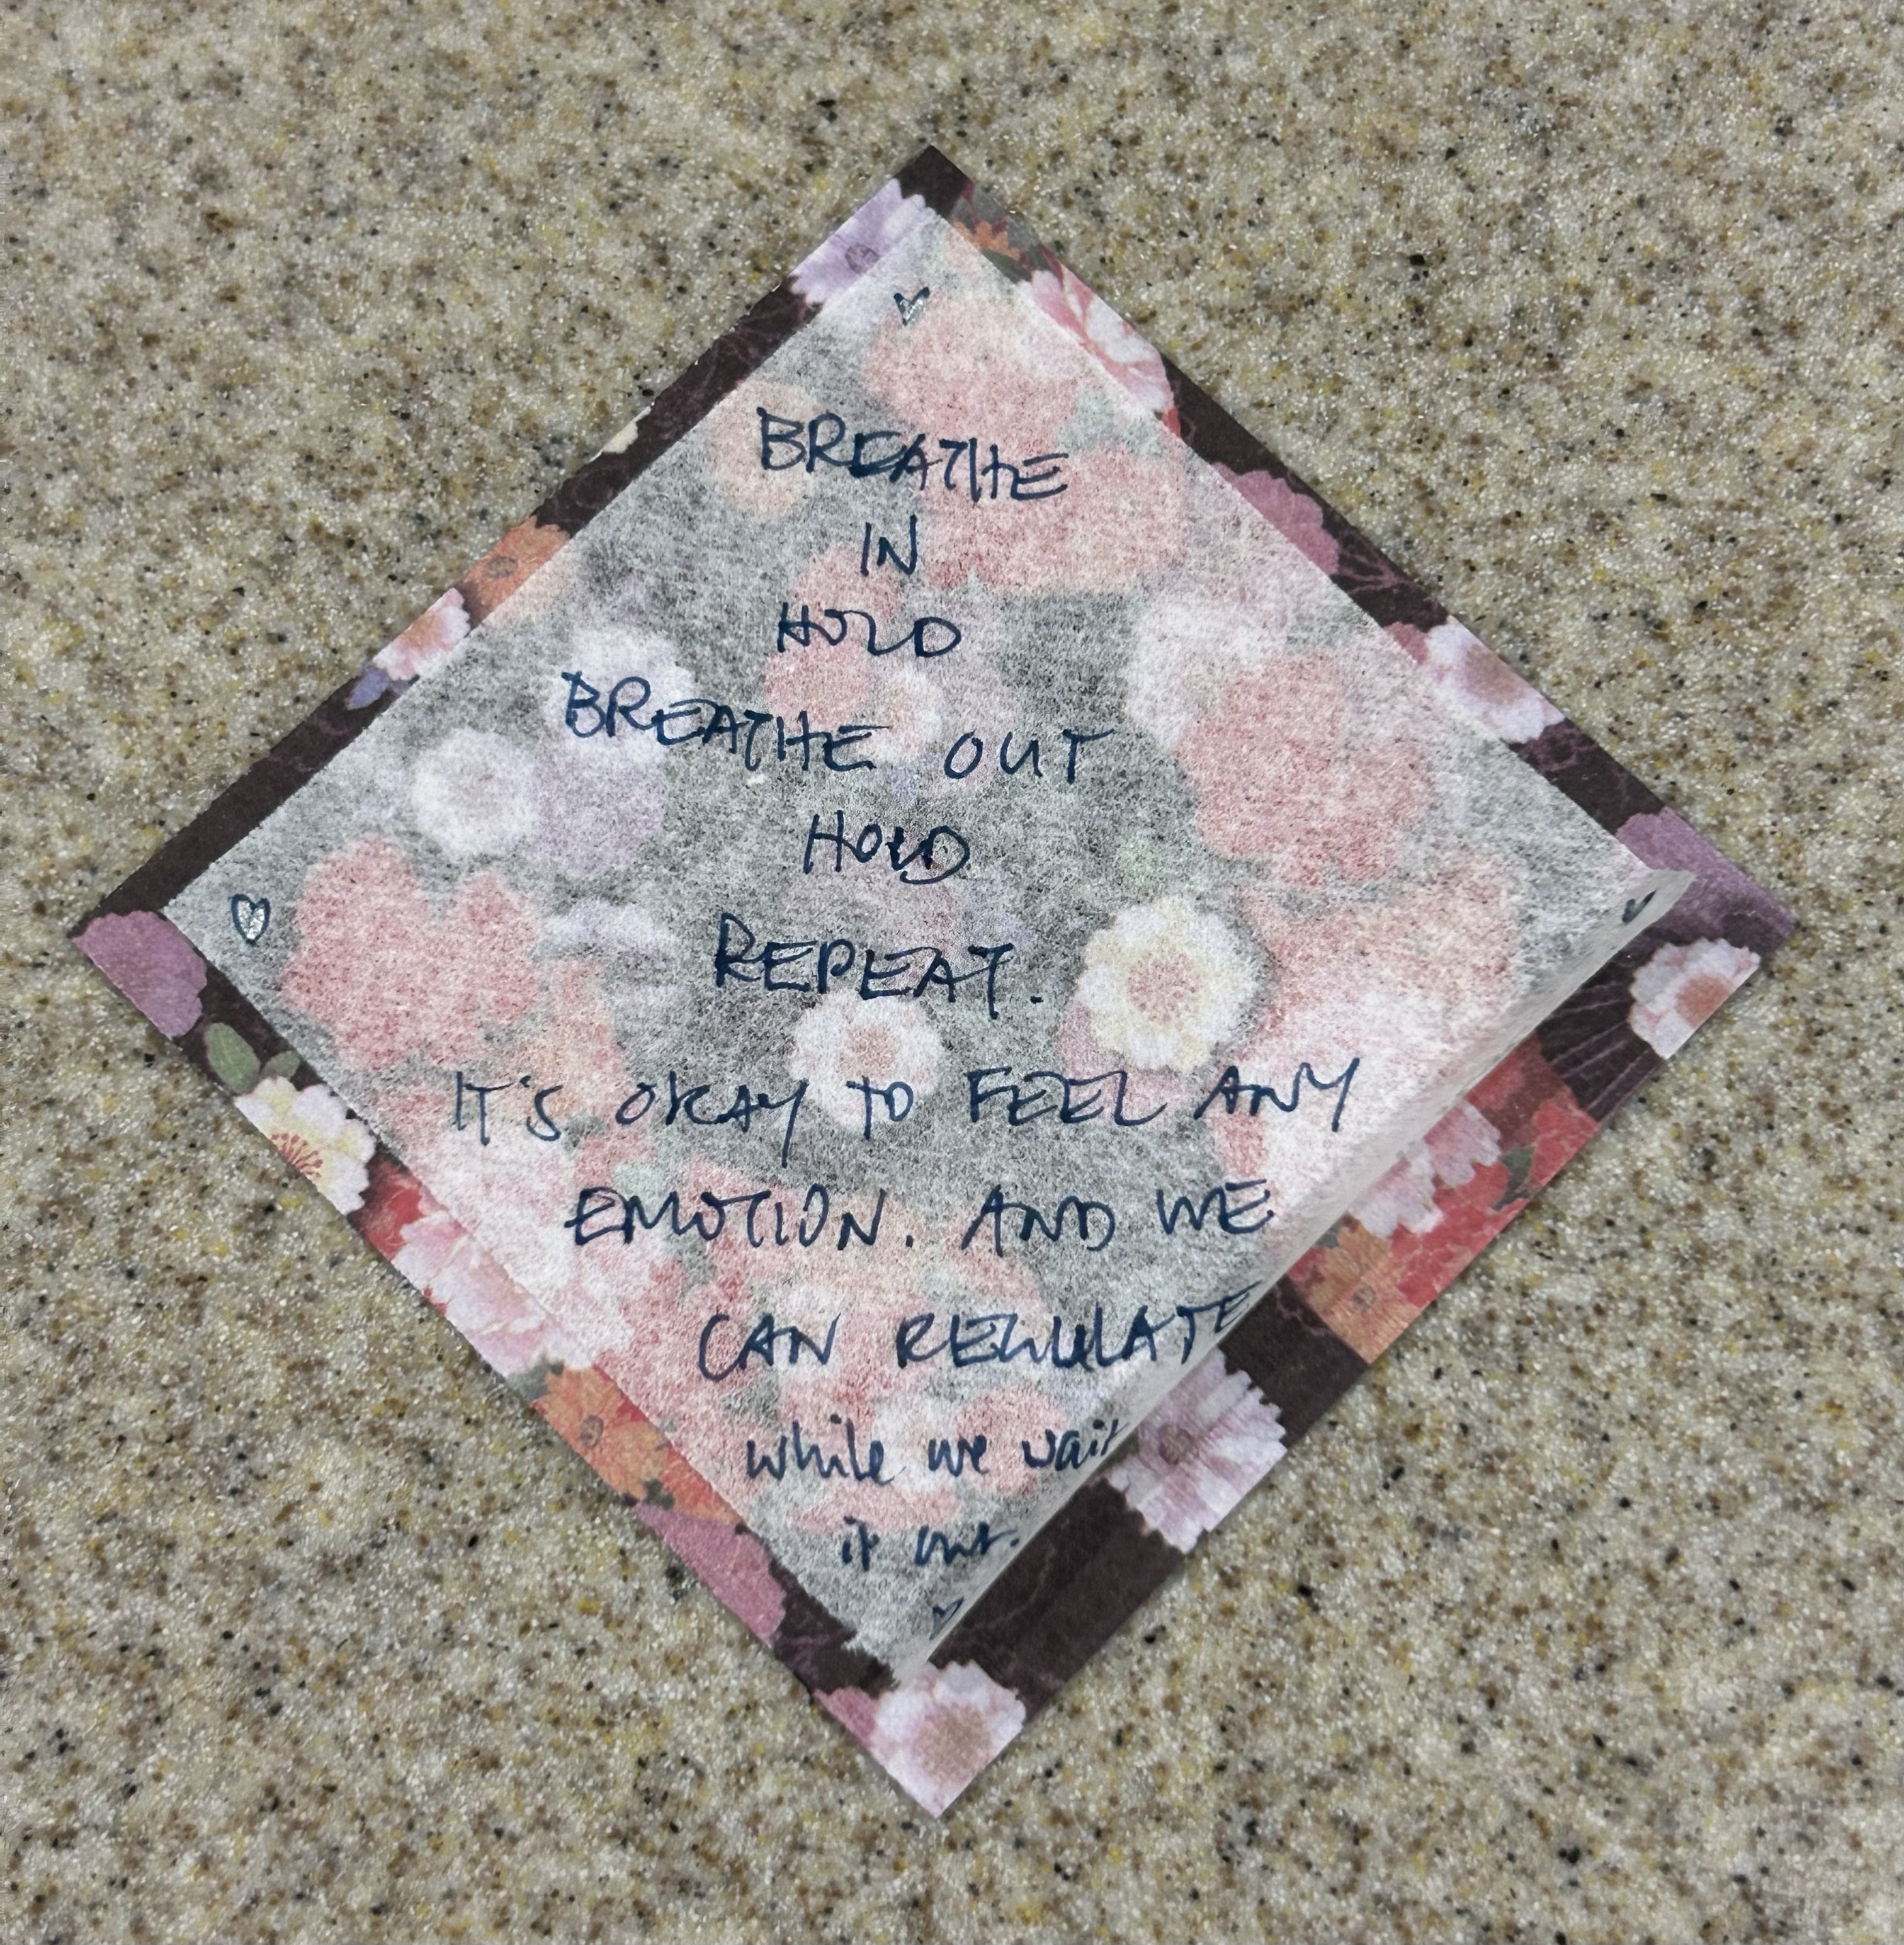 BREATHE
IN
HOLD
BREATHE OUT
HOLD
REPEAT.
IT'S OKAY TO FEEL ANY
EMOTION. AND WE
CAN REGULATE
while we wait
it out.